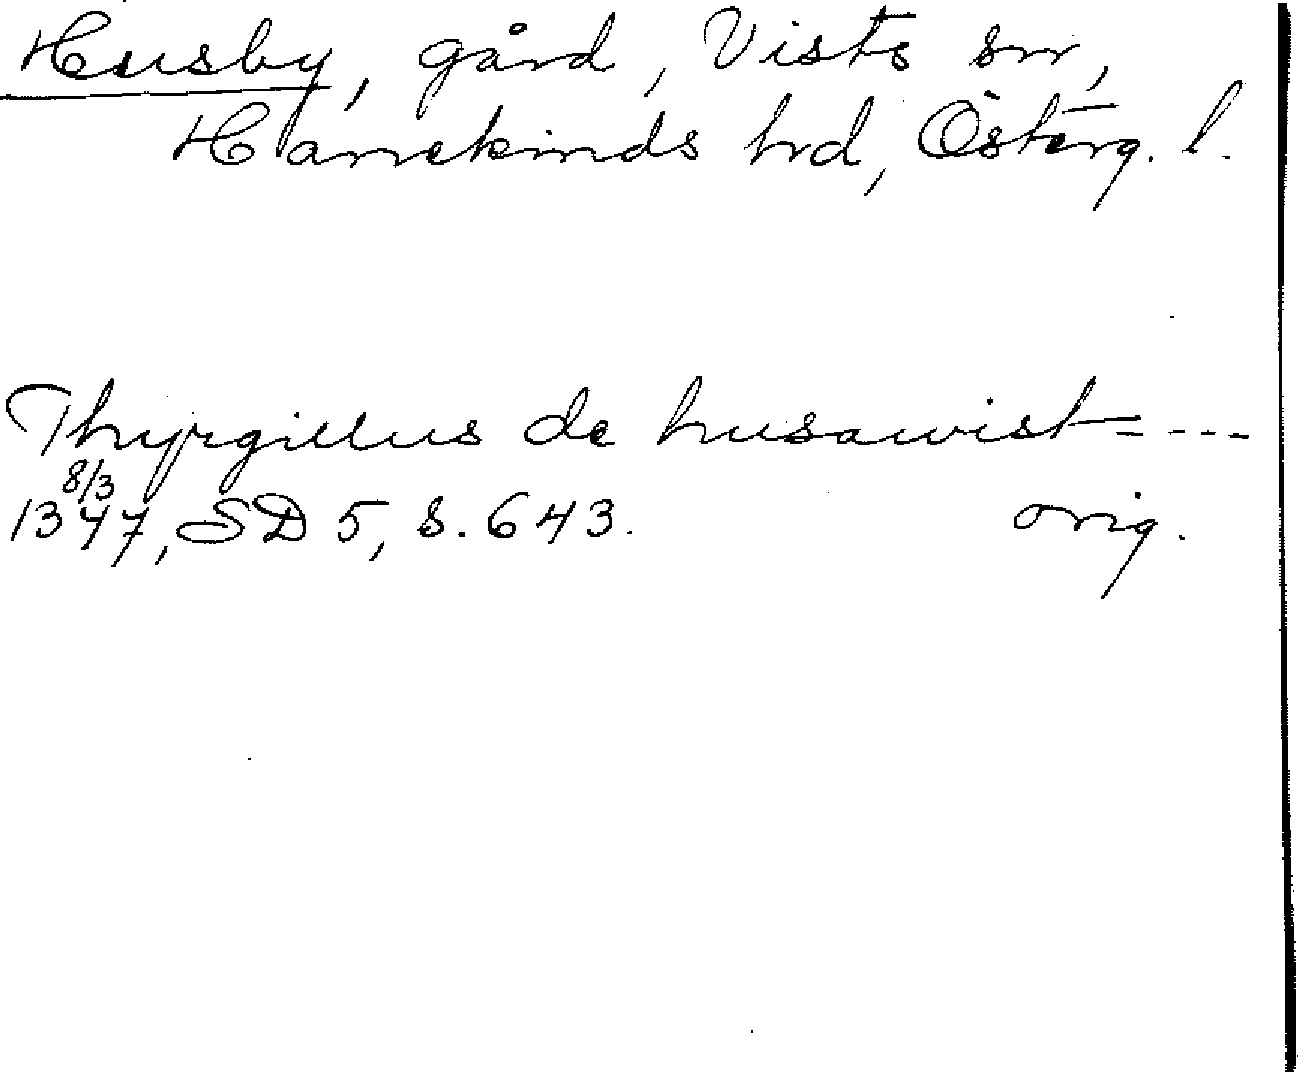 Husby, gård, Vists sn,
Hanekinds hrd, Österg. l.
Thyrgillus de husawist= ---
8/3
1347, SD 5, s. 643. orig.